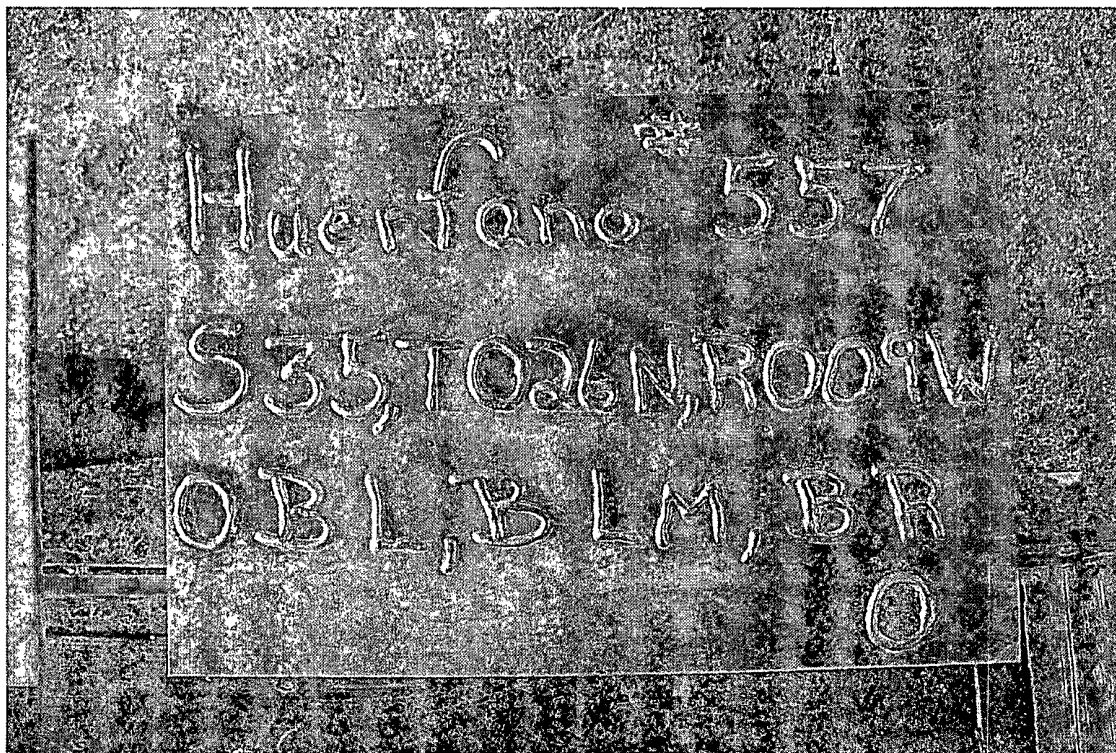 Huerfano # 557
S35,T026N,R009W
OBL,BLM,BR
O